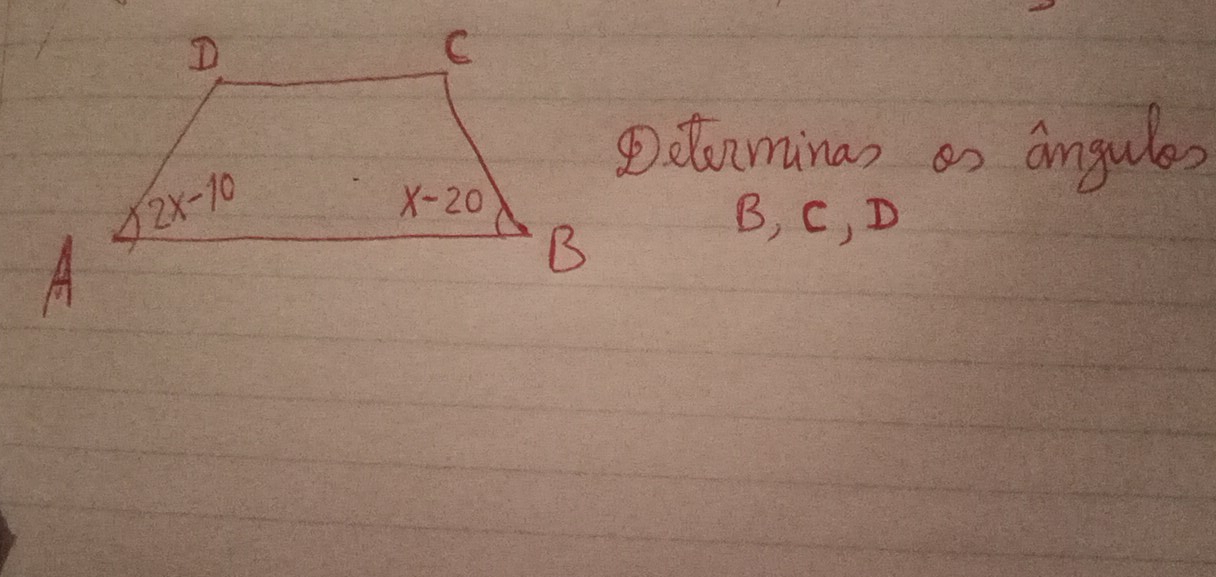 D C
2x-10 x-20
A B
Determinas os ângulos
B, C, D